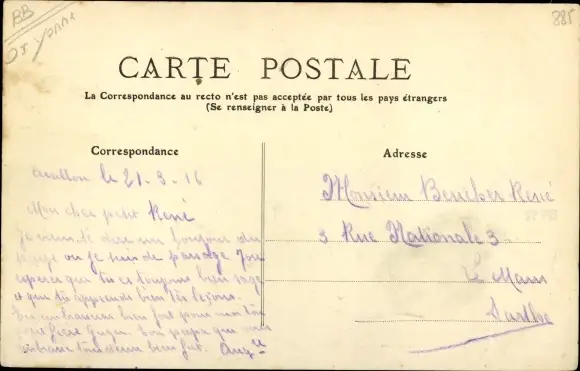 BB
885
CARTE POSTALE
La Correspondance au recto n'est pas acceptée par tous les pays étrangers
(Se renseigner à la Poste)
Correspondance
Adresse
Avallon le 21-3-16
Mon cher petit René
Je viens te dire un bonjour du
pays où je suis de passage. J'ose
espérer que tu es toujours bien sage
et que tu apprends bien tes leçons.
embrasseras bien fort pour moi ton
petit frère ton papa qui vous
embrasse tous deux bien fort.
Monsieur René
3 Rue Nationale 3
Le Mans
Sarthe